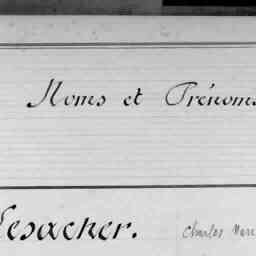 Noms et Prénoms
Lesacher. Charles